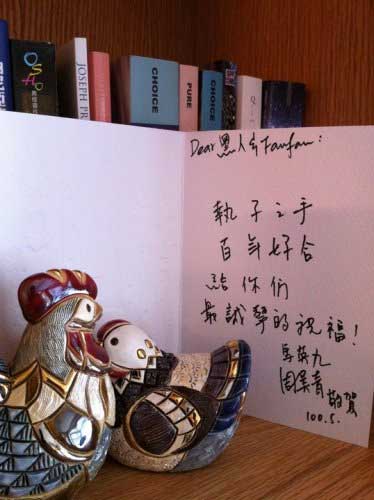 OSHO
JOSEPH
CHOICE
PURE
CHOICE
Dear 黑人&Fanfan:
執子之手
百年好合
給你們
最誠摯的祝福!
馬英九
周美青 敬賀
100.5.